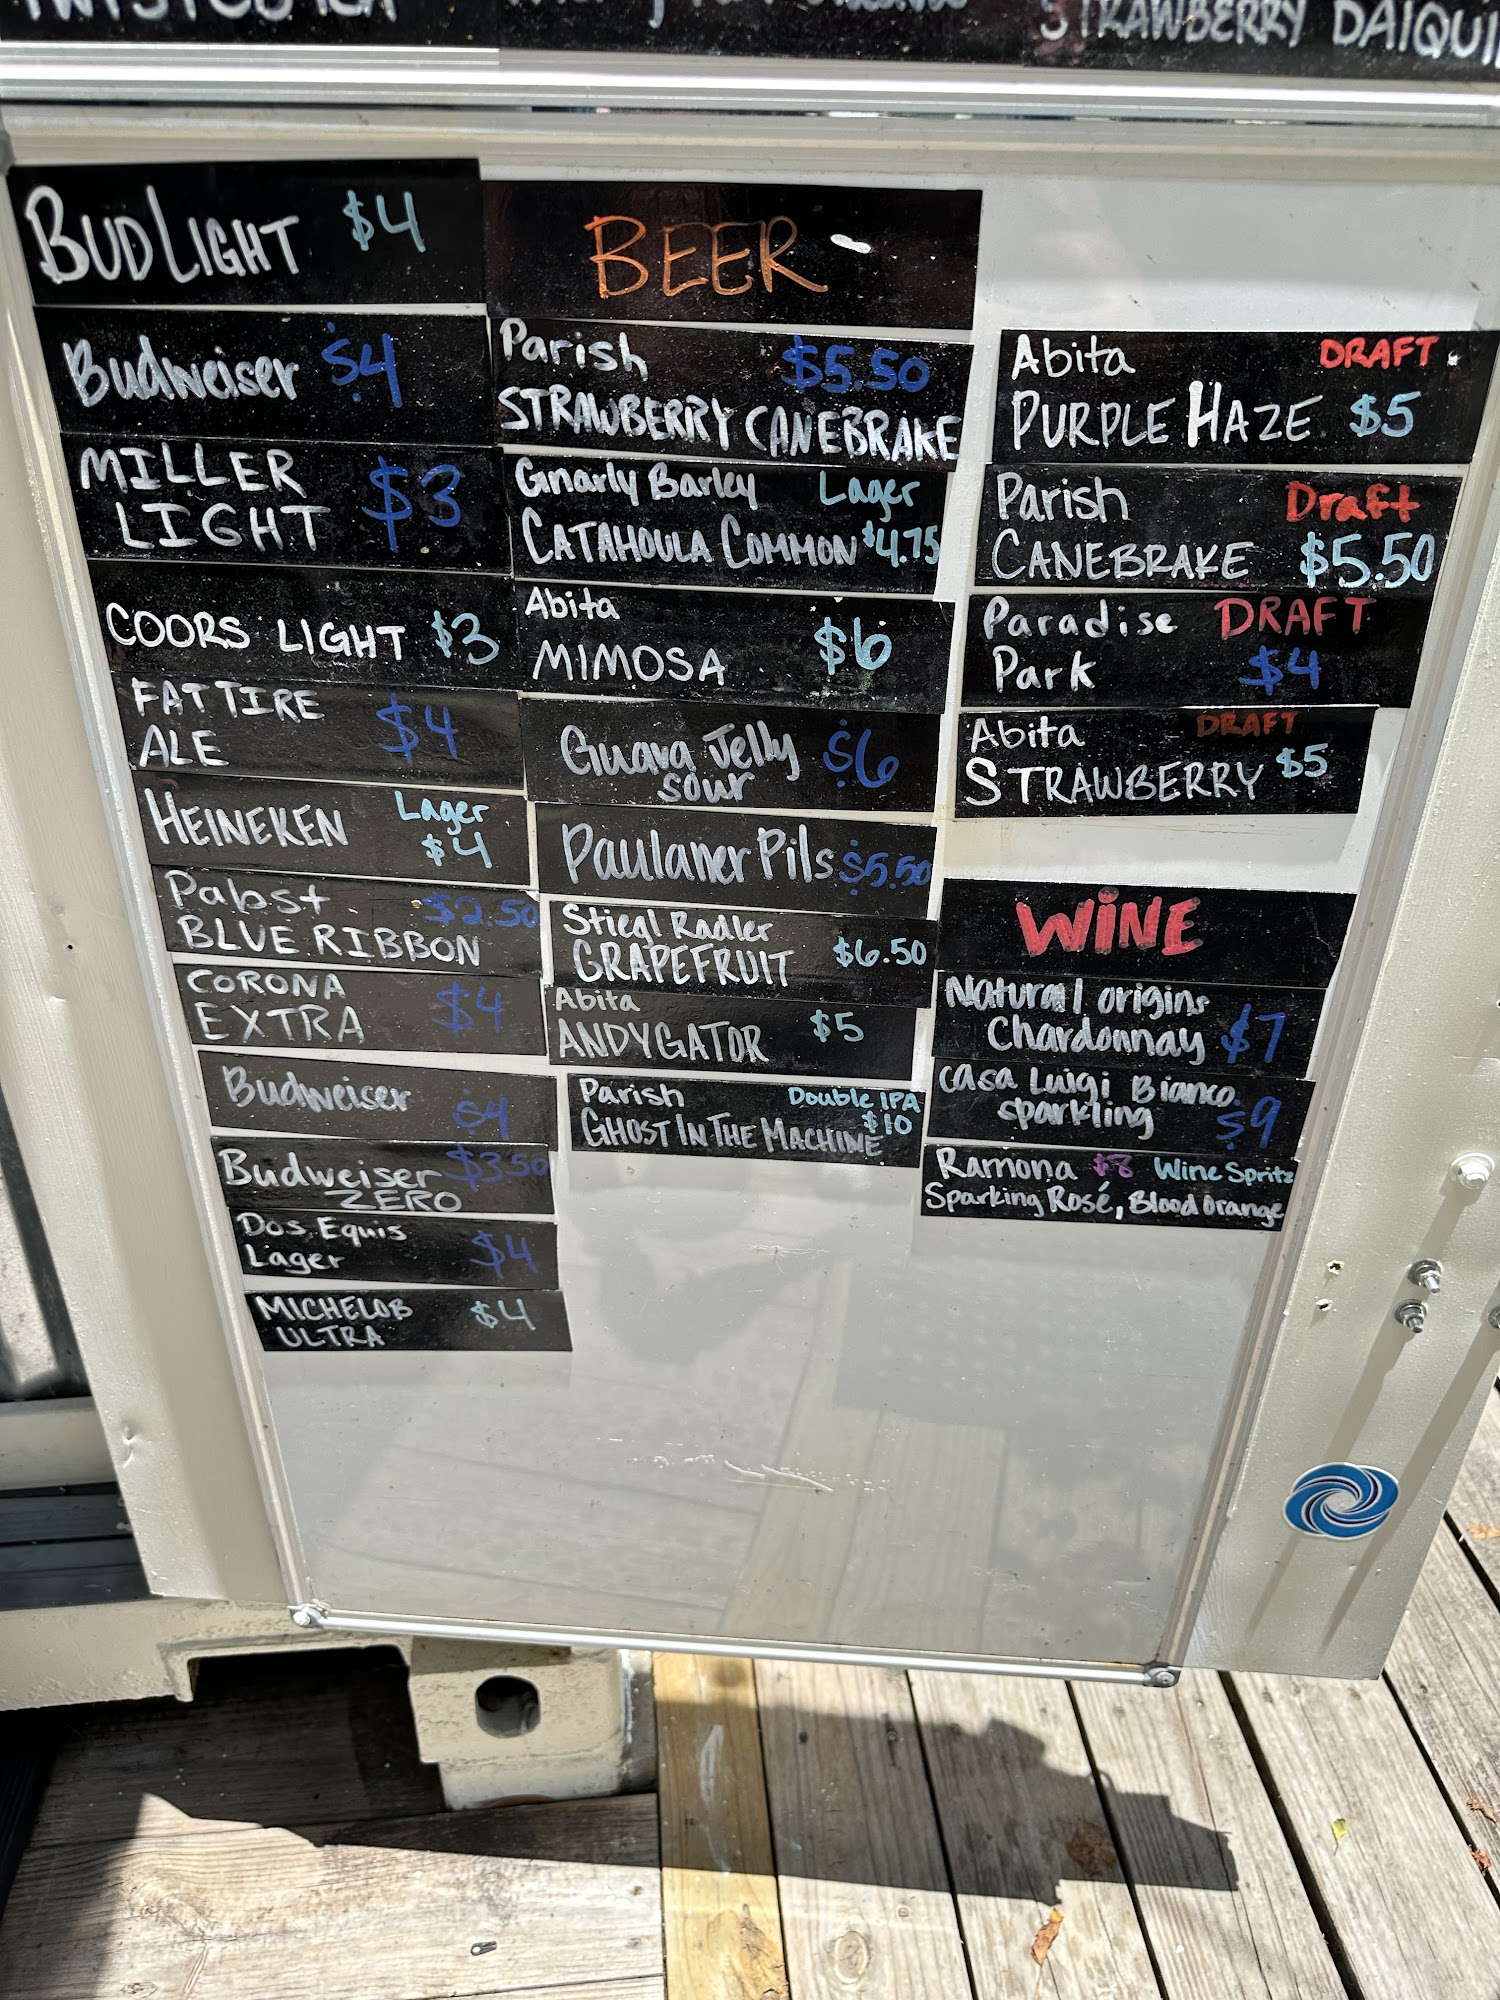 STRAWBERRY DAIQUI
BUD LIGHT $4
Budweiser $4
MILLER
LIGHT $3
COORS LIGHT $3
FAT TIRE
ALE $4
HEINEKEN Lager
$4
Pabst $2.50
BLUE RIBBON
CORONA
EXTRA $4
Budweiser $4
Budweiser $3.50
ZERO
Dos Equis
Lager $4
MICHELOB
ULTRA $4
BEER
Parish $5.50
STRAWBERRY CANEBRAKE
Gnarly Barley Lager
CATAHOULA COMMON $4.75
Abita
MIMOSA $6
Guava Jelly $6
sour
Paulaner Pils $5.50
Stiegl Radler
GRAPEFRUIT $6.50
Abita
ANDYGATOR $5
Parish Double IPA
GHOST IN THE MACHINE $10
Abita DRAFT
PURPLE HAZE $5
Parish Draft
CANEBRAKE $5.50
Paradise DRAFT
Park $4
Abita DRAFT
STRAWBERRY $5
WINE
Natural origins
Chardonnay $7
Casa Luigi Bianco
sparkling $9
Ramona $8 Wine Spritz
Sparking Rosé, Blood orange